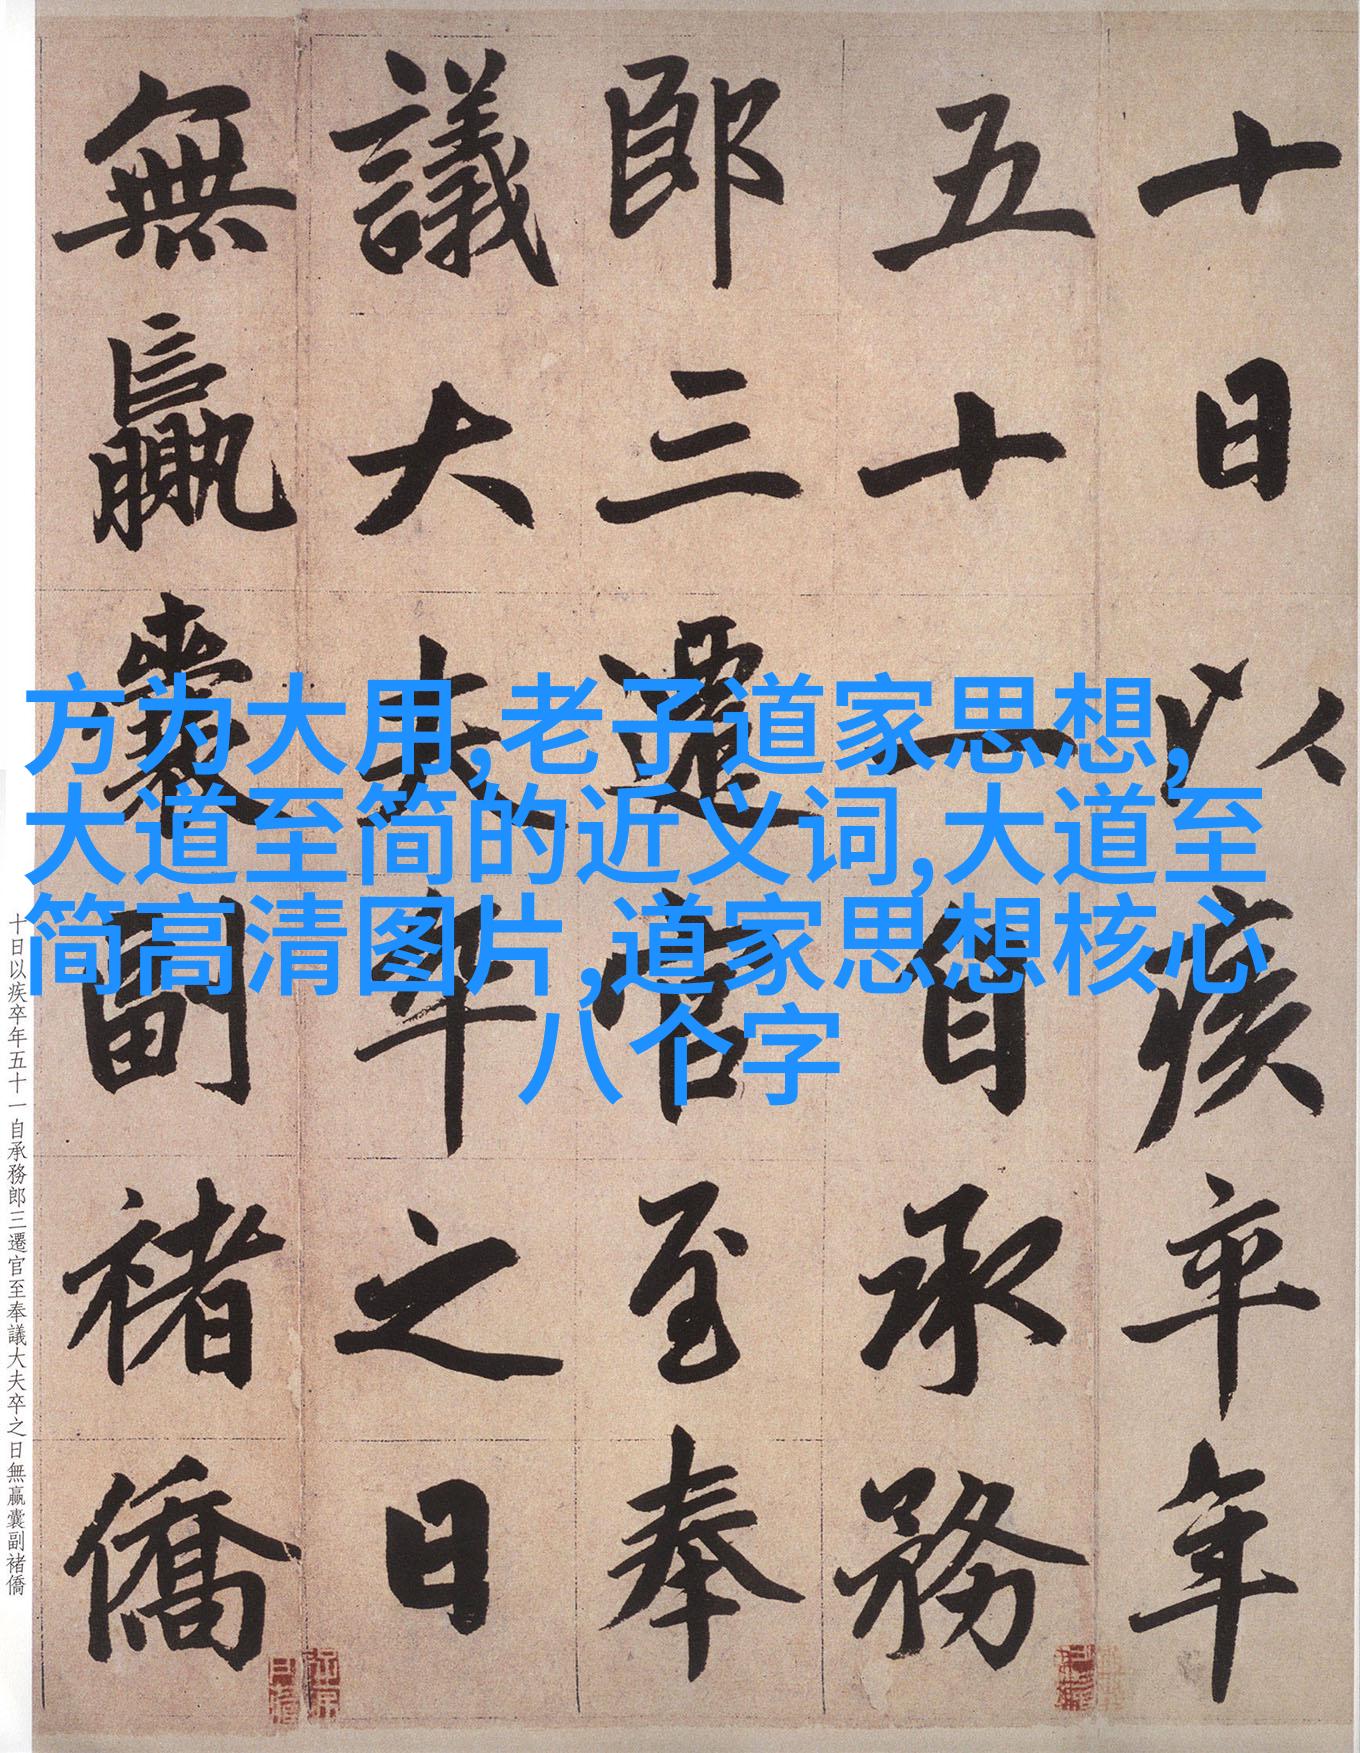 十日以疾卒年
五十一自承務
郎三遷官至奉
議大夫卒之日
無贏囊副褚僑
方为大用,老子道家思想,
大道至简的近义词,大道至
简高清图片,道家思想核心
八个字
十日以疾卒年五十一自承務郎三遷官至奉議大夫卒之日無贏囊副褚僑